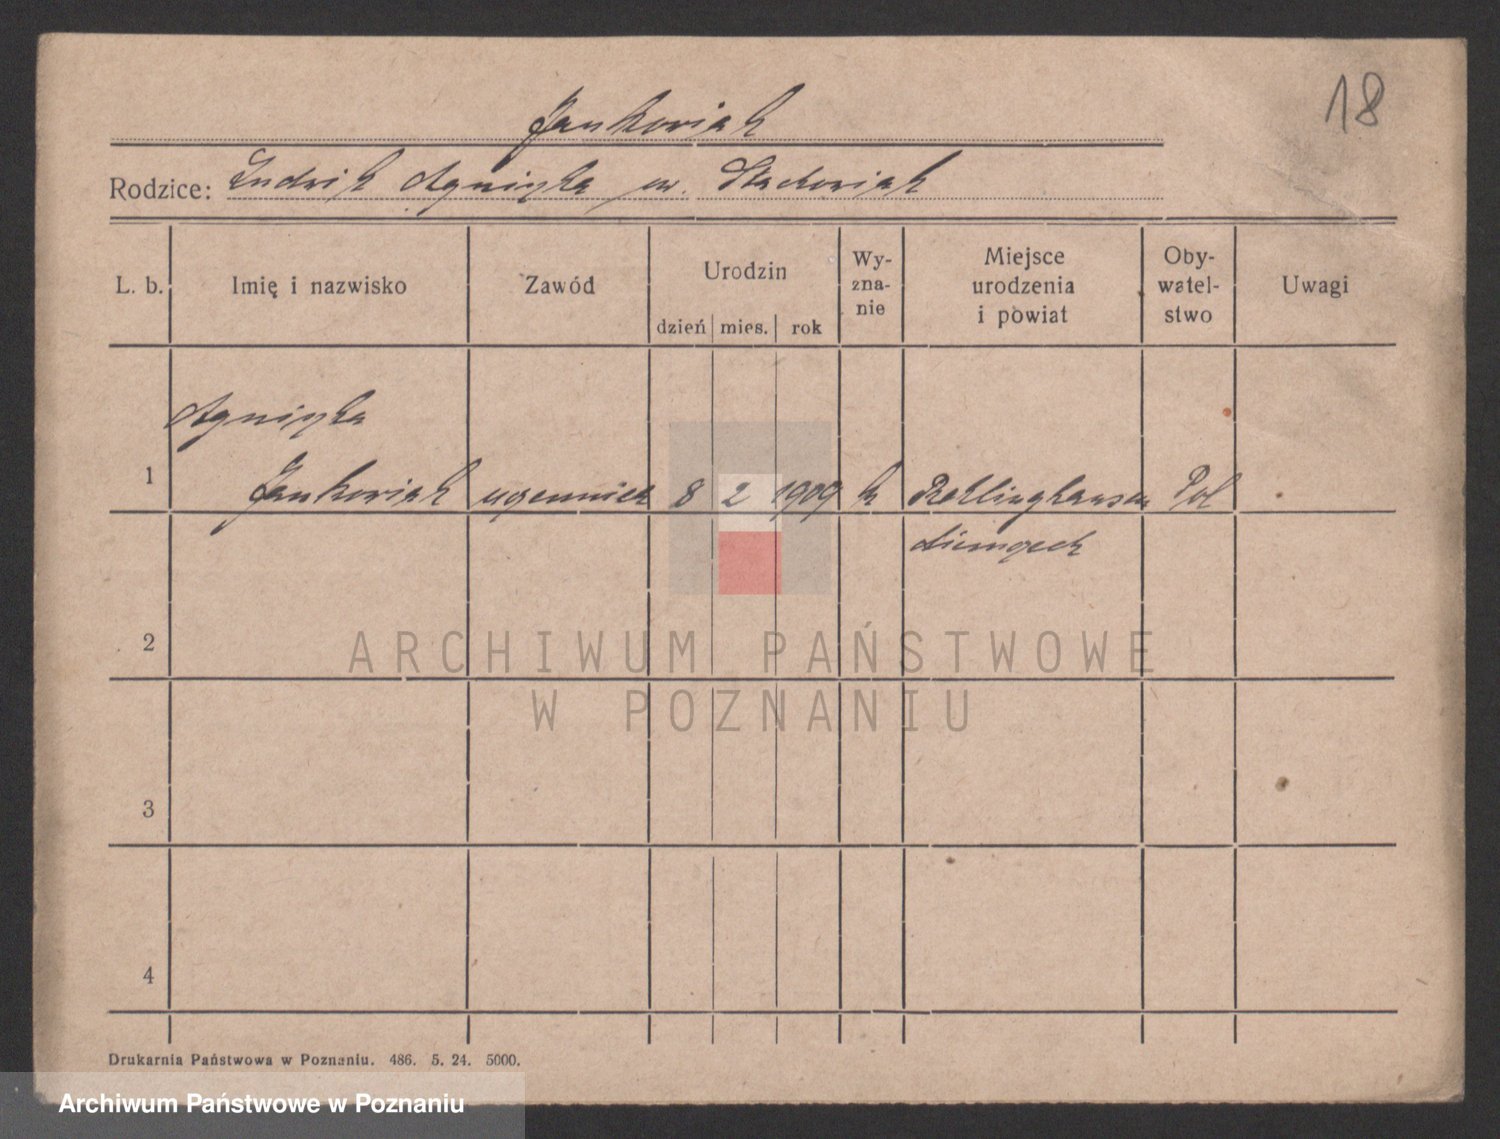 18
Jankowiak
Rodzice: Ludwik Agnieszka ur. Stachowiak
L. b.
Imię i nazwisko
Zawód
Urodzin
dzień mies. rok
Wy-
zna-
nie
Miejsce
urodzenia
i powiat
Oby-
watel-
stwo
Uwagi
Agnieszka
1 Jankowiak 8 2 1909 k Pol
2
3
4
ARCHIWUM PAŃSTWOWE
W POZNANIU
Drukarnia Państwowa w Poznaniu. 486. 5. 24. 5000.
Archiwum Państwowe w Poznaniu